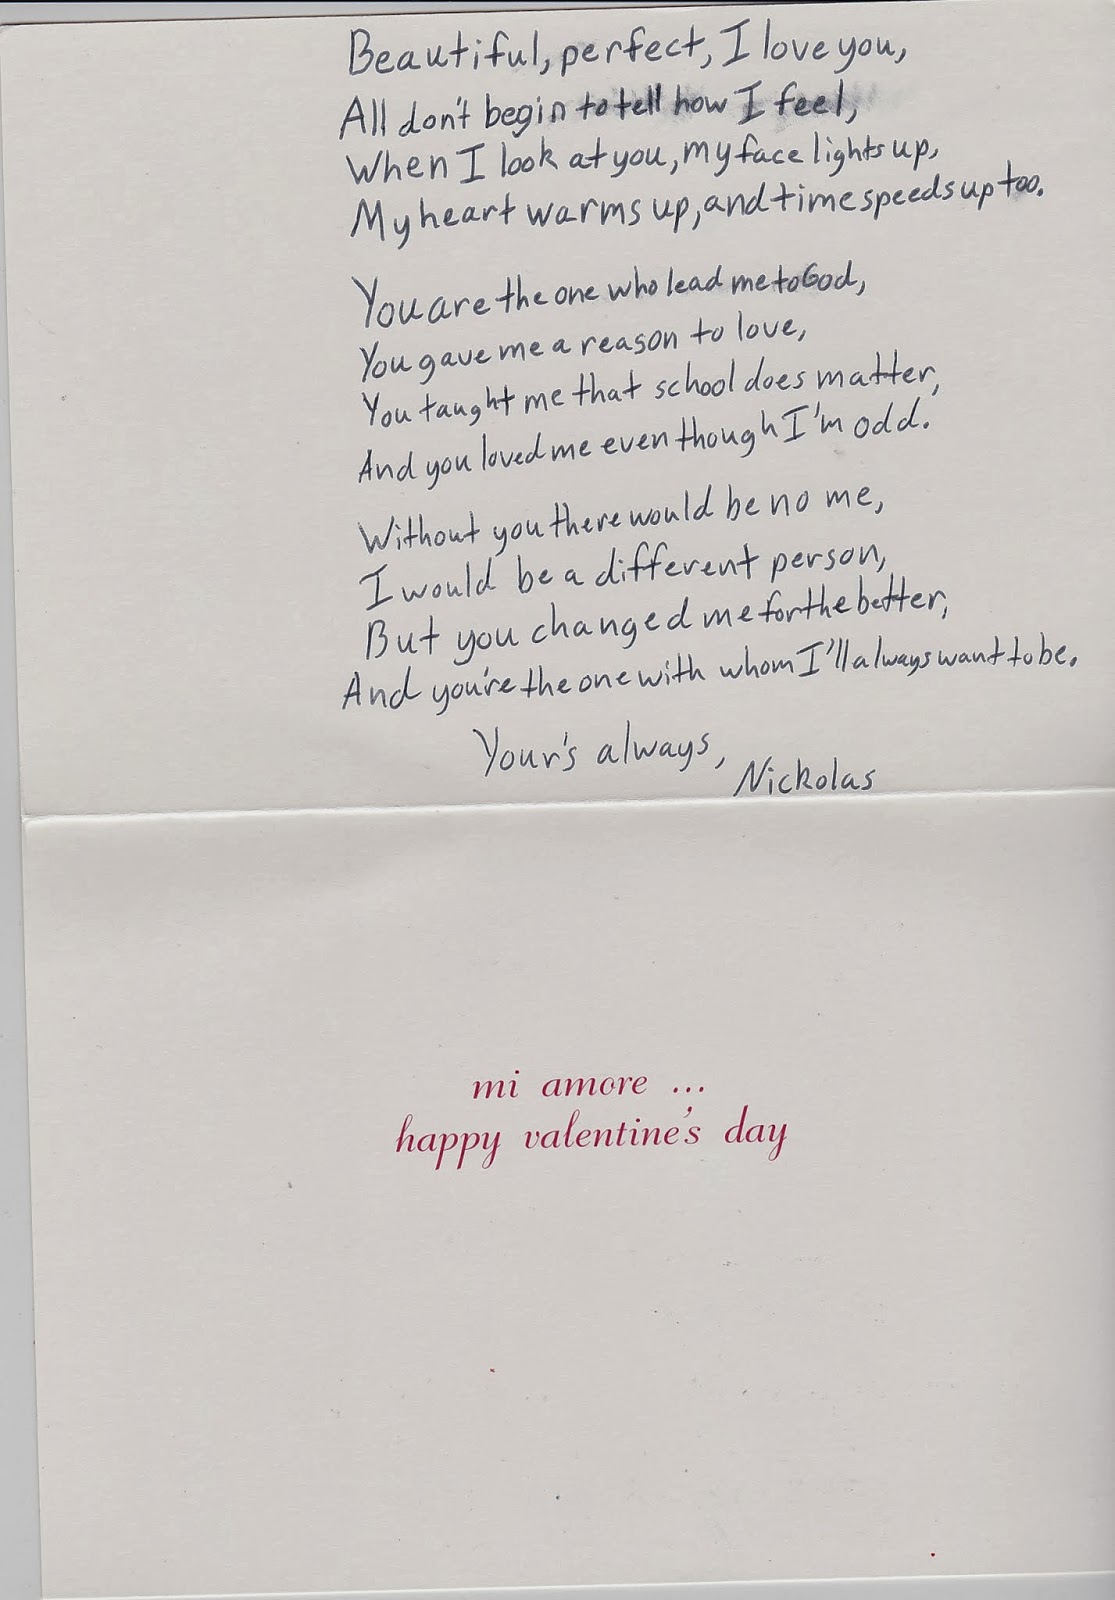 Beautiful, perfect, I love you,
All don't begin to tell how I feel,
When I look at you, my face lights up,
My heart warms up, and time speeds up too.
You are the one who lead me to God,
You gave me a reason to love,
You taught me that school does matter,
And you loved me even though I'm odd.
Without you there would be no me,
I would be a different person,
But you changed me for the better,
And you're the one with whom I'll always want to be.
Your's always,
Nickolas
mi amore ...
happy valentine's day